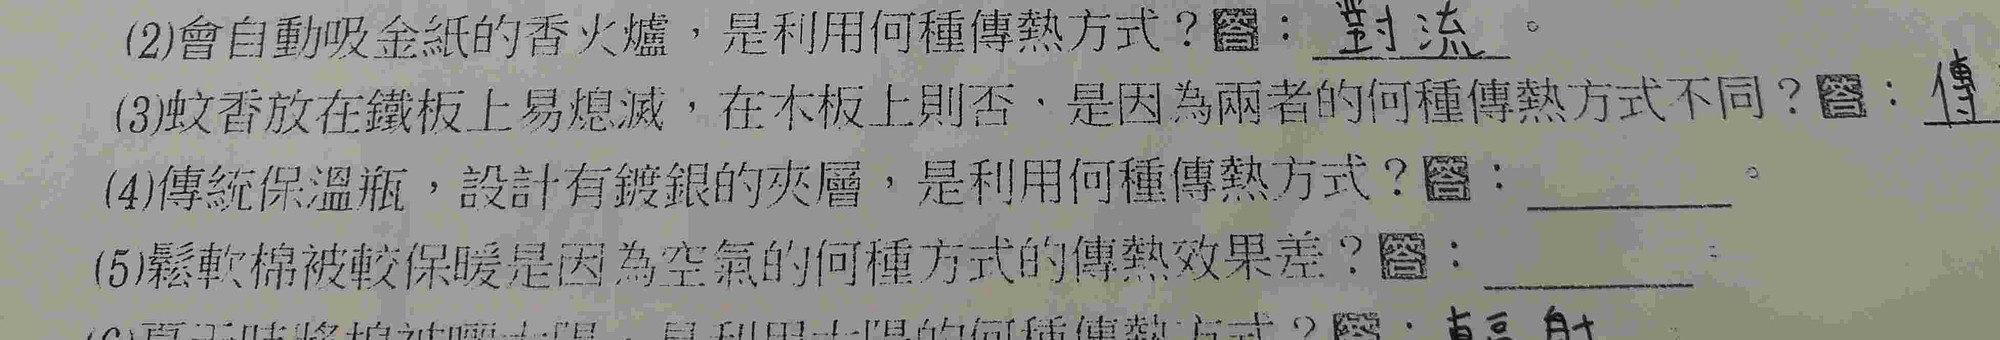 (2)會自動吸金紙的香火爐，是利用何種傳熱方式？答：對流。
(3)蚊香放在鐵板上易熄滅，在木板上則否，是因為兩者的何種傳熱方式不同？答：傳
(4)傳統保溫瓶，設計有鍍銀的夾層，是利用何種傳熱方式？答：______。
(5)鬆軟棉被較保暖是因為空氣的何種方式的傳熱效果差？答：______。
(6)夏天時將棉被曬太陽，是利用太陽的何種傳熱方式？答：輻射